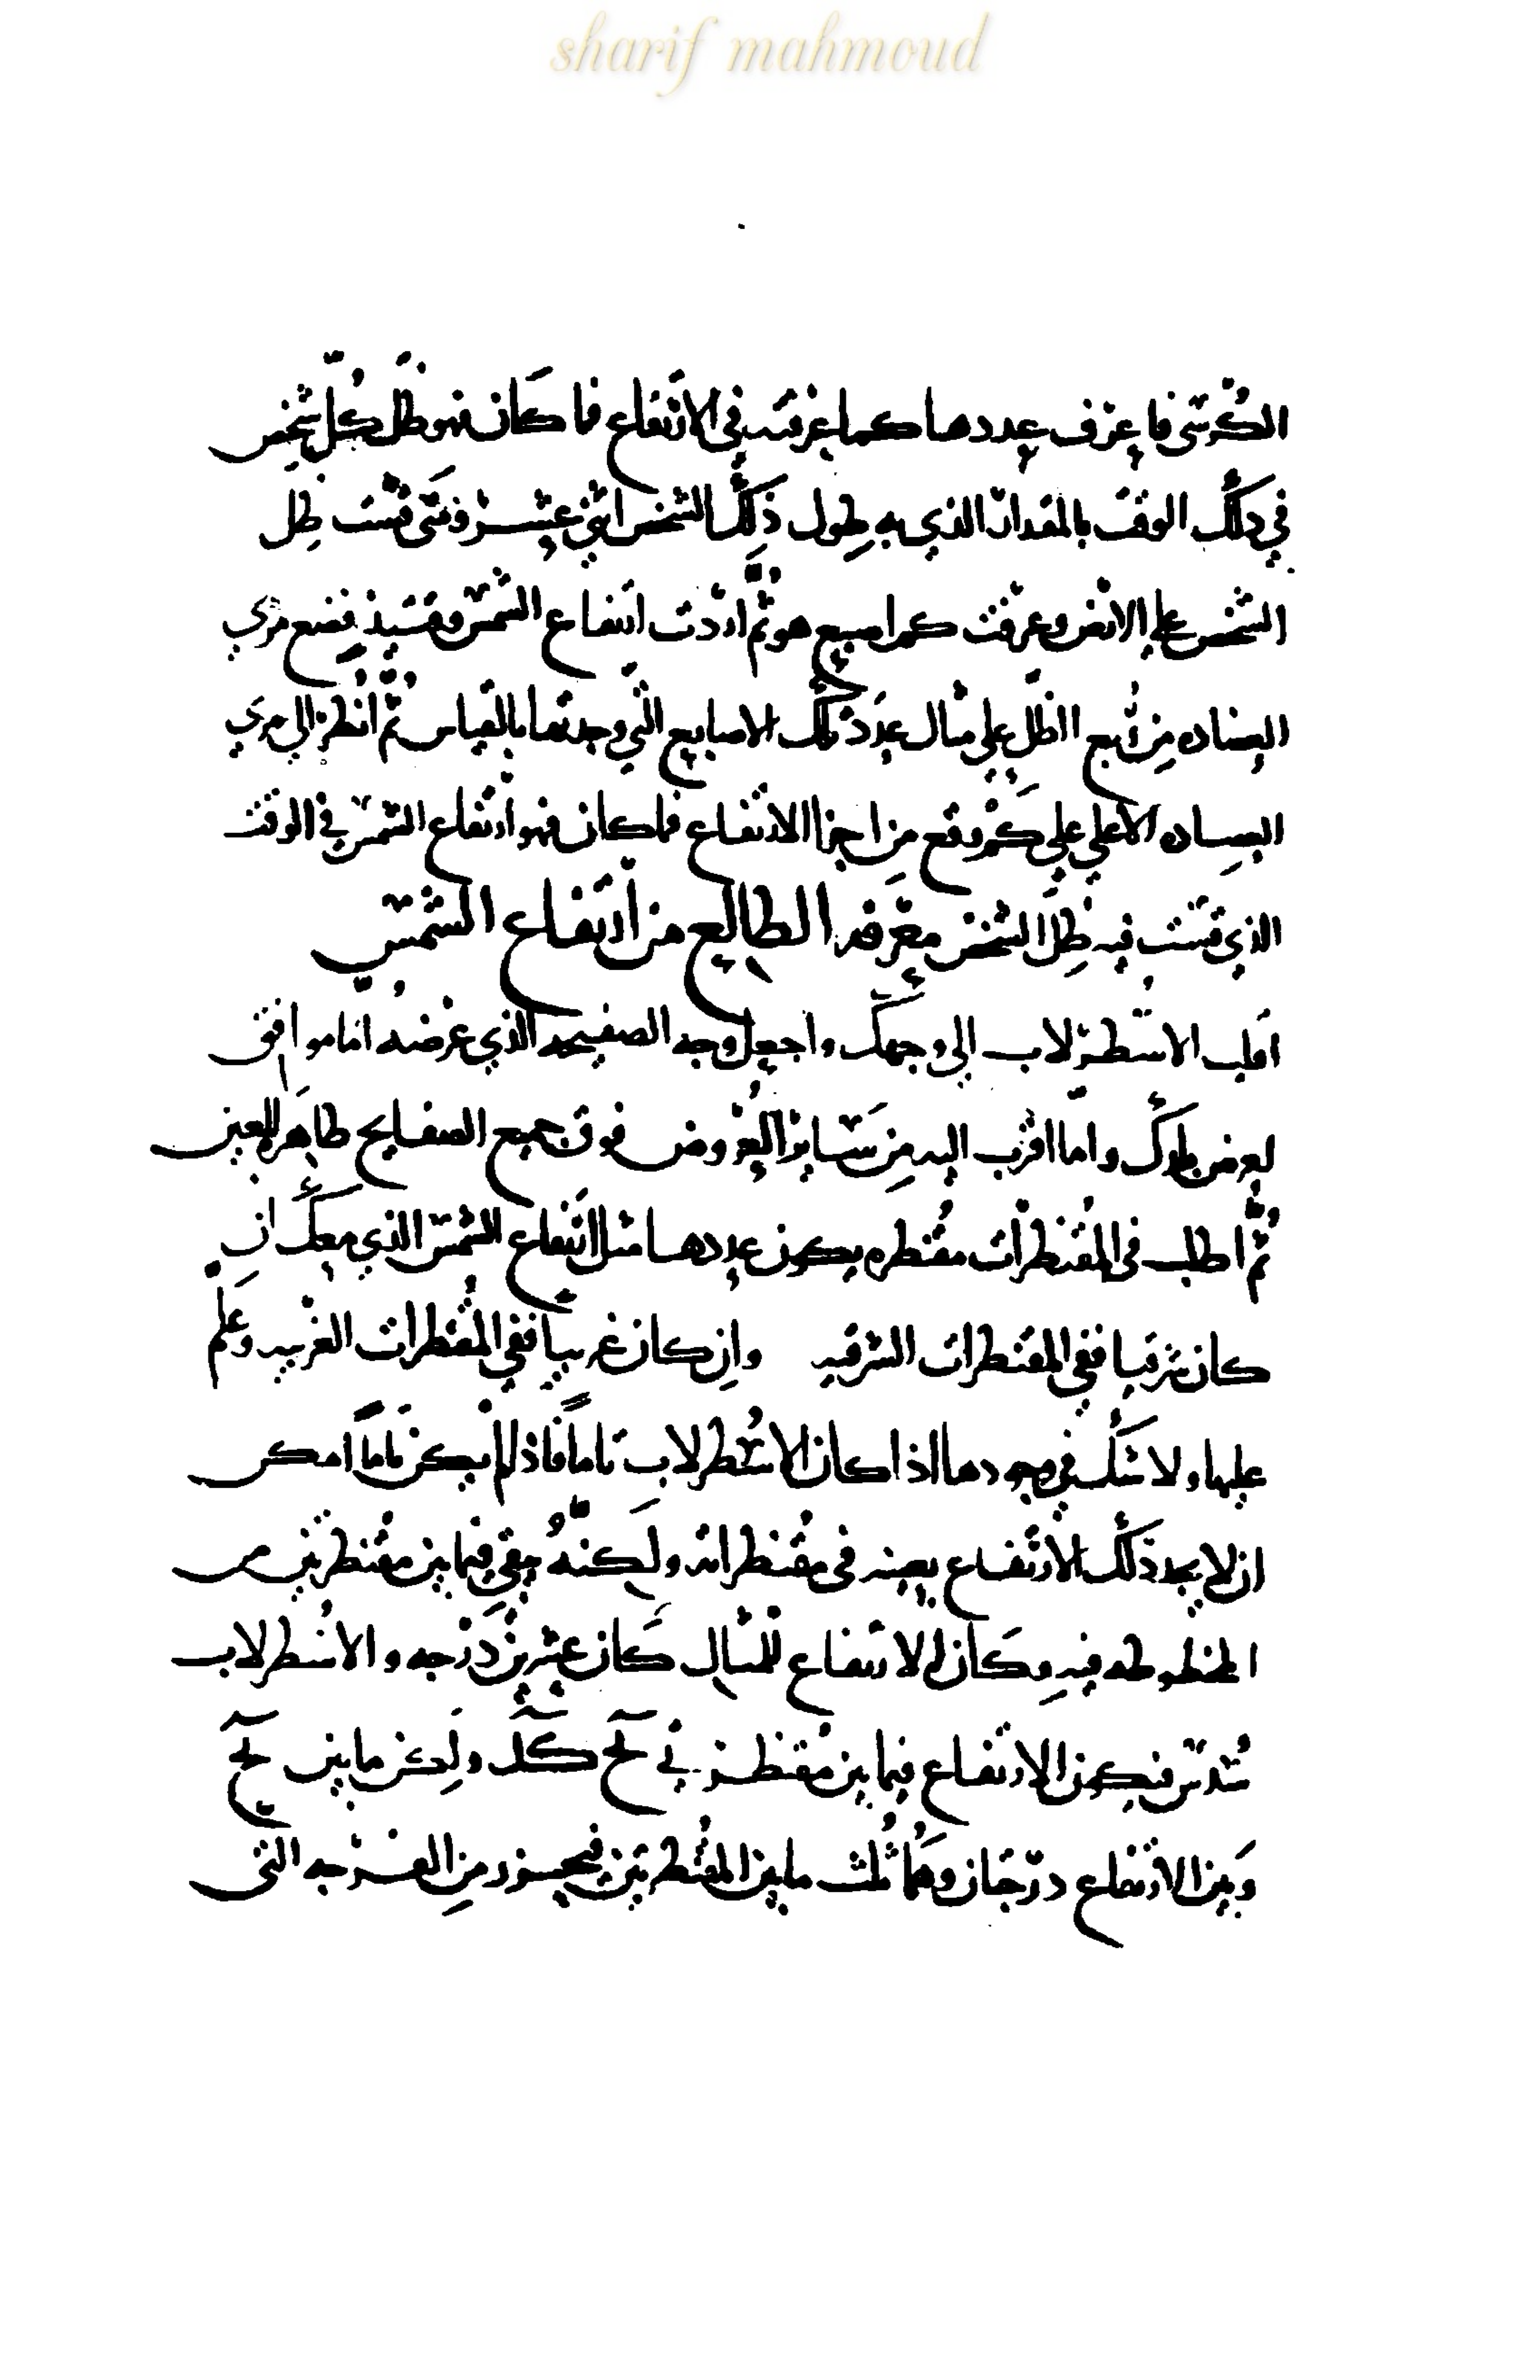 sharif mahmoud
الكرسى فاعرف عددها كما عرفته فى الارتفاع فما كان فهو ظل كل شخص
في ذلك الوقت بالمقدار الذي به طول ذلك الشخص اثني عشر ومتى قست ظل
الشخص على الارض وعرفت كم اصبع هو ثم اردت ارتفاع الشمس وقتئذ فضع مري
العضاده من ربع الظل على مثال عدد تلك الاصابع التي وجدتها بالقياس ثم انظر الي مري
العضاده الاعلي علي كم وقع من اجزا الارتفاع فما كان فهو ارتفاع الشمس في الوقت
الذي قست فيه ظل الشخص معرفه الطالع من ارتفاع الشمس
اقلب الاسطرلاب الي وجهك واجعل وجه الصفيحه الذي عرضه اما موافق
لعرض بلدك واما اقرب اليه من ساير العروض فوق جميع الصفايح ظاهر للعين
ثم اطلب في المقنطرات مقنطره يكون عددها مثل ارتفاع الشمس الذي معك ان
كان شرقيا ففي المقنطرات الشرقيه وان كان غربيا ففي المقنطرات الغربيه وعلم
عليها ولا شك في وجودها اذا كان الاسطرلاب تاما فاذ لم يكن تاما امكن
ان لا يجد ذلك الارتفاع بعينه في مقنطراته ولكنه يقع فيما بين مقنطرتين من
المخطوطه فيه وكان الارتفاع للمثال كان عشرين درجه والاسطرلاب
سدس فيكون الارتفاع فيما بين مقنطرتي يح كد ولكن ما بين يح
وبين الارتفاع درجتان وهما ثلث ما بين المقنطرتين فيحرز من الفرجه التى